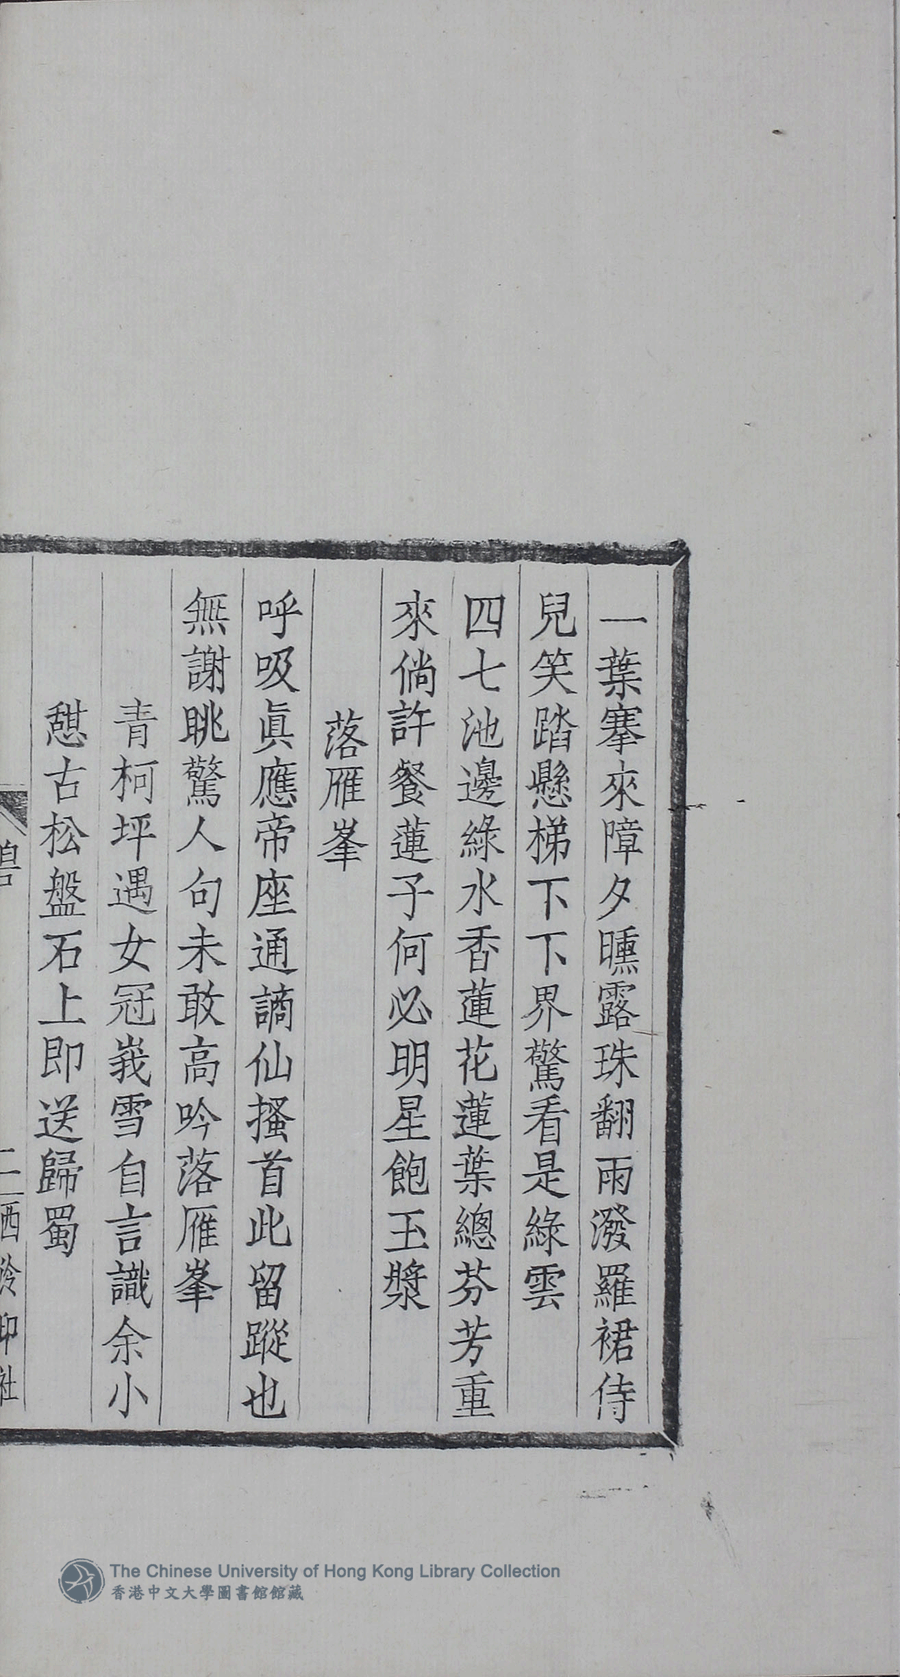 一葉搴來障夕曛露珠翻雨潑羅裙侍
兒笑踏懸梯下下界驚看是綠雲
四七池邊綠水香蓮花蓮葉總芬芳重
來倘許餐蓮子何必明星飽玉漿
落雁峯
呼吸眞應帝座通謫仙搔首此留蹤也
無謝眺驚人句未敢高吟落雁峯
青柯坪遇女冠峩雪自言識余小
憇古松盤石上即送歸蜀
二 西泠印社
The Chinese University of Hong Kong Library Collection
香港中文大學圖書館館藏